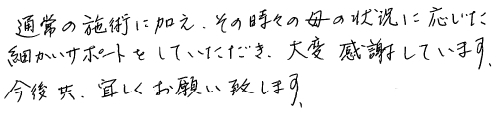 通常の施術に加え、その時々の母の状況に応じた
細かいサポートをしていただき、大変感謝しています、
今後共、宜しくお願い致します、